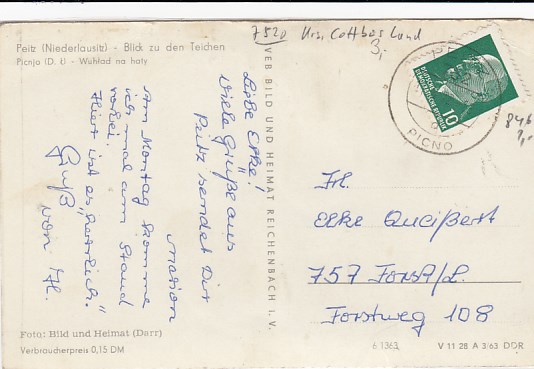 7520 Krs. Cottbus Land
3,-
Peitz (Niederlausitz) - Blick zu den Teichen
Picnjo (D. Ł) - Wuhlad na haty
Liebe Elke!
Viele Grüße aus
Peitz sendet Dir
Marion
Am Montag komme
ich mal am Stand
vorbei.
Hier ist es "herrlich".
Gruß
von
VEB BILD UND HEIMAT REICHENBACH I. V.
DEUTSCHE
DEMOKRATISCHE REPUBLIK
10
PICNO
846
Frl.
Elke Queißert
757 Forst/L.
Forstweg 108
Foto: Bild und Heimat (Darr)
Verbraucherpreis 0,15 DM
6 1363
V 11 28 A 3/63 DDR